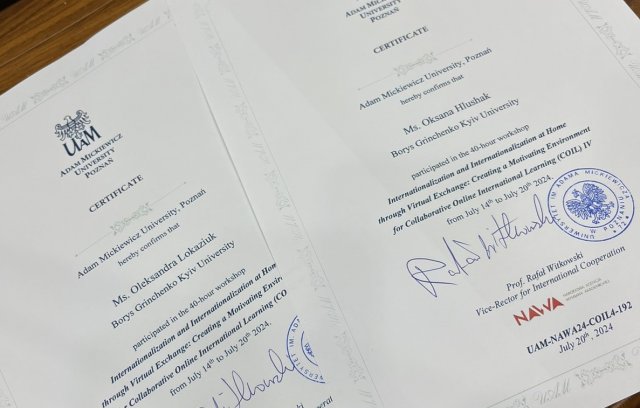 UAM
ADAM MICKIEWICZ
UNIVERSITY
POZNAŃ
CERTIFICATE
Adam Mickiewicz University, Poznań
hereby confirms that
Ms. Oleksandra Lokaziuk
Borys Grinchenko Kyiv University
participated in the 40-hour workshop
Internationalization and Internationalization at Hom
through Virtual Exchange: Creating a Motivating Environ
for Collaborative Online International Learning (CO
from July 14th to July 20th 2024.
UNIVERSITY
POZNAŃ
CERTIFICATE
Adam Mickiewicz University, Poznań
hereby confirms that
Ms. Oksana Hlushak
Borys Grinchenko Kyiv University
participated in the 40-hour workshop
Internationalization and Internationalization at Home
through Virtual Exchange: Creating a Motivating Environment
for Collaborative Online International Learning (COIL) IV
from July 14th to July 20th 2024.
UNIWERSYTET IM. ADAMA MICKIEWICZA W POZNANIU
Prof. Rafał Witkowski
Vice-Rector for International Cooperation
NAWA
UAM-NAWA24-COIL4-192
July 20th, 2024